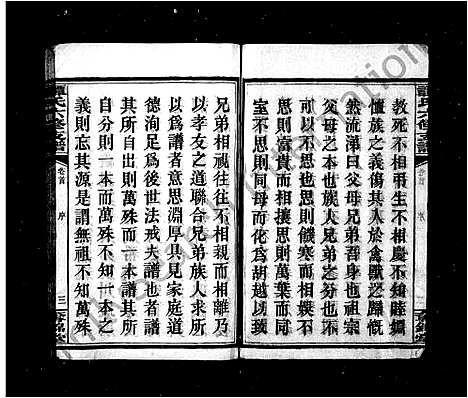 教死不相弔生不相慶不知辟獮
惟族之義傷其入於禽獸之歸慨
然流涕曰父母兄弟吾身也祖宗
父母之本也族人兄弟之分也不
可以不思也思則饑寒而相娛不
思則富貴而相攘思則萬葉而同
室不思則同母而化為胡越以致
兄弟相視往往不相親而相離乃
以孝友之道聯合兄弟族人求所
以為譜者意思淵厚具見家庭道
德洵足為後世法戒夫譜也者譜
其所自出則萬殊而一本譜其所
自分則一本而萬殊不知一本之
義則忘其源是謂無祖不知萬殊
譚氏六修支譜
卷首
序
三